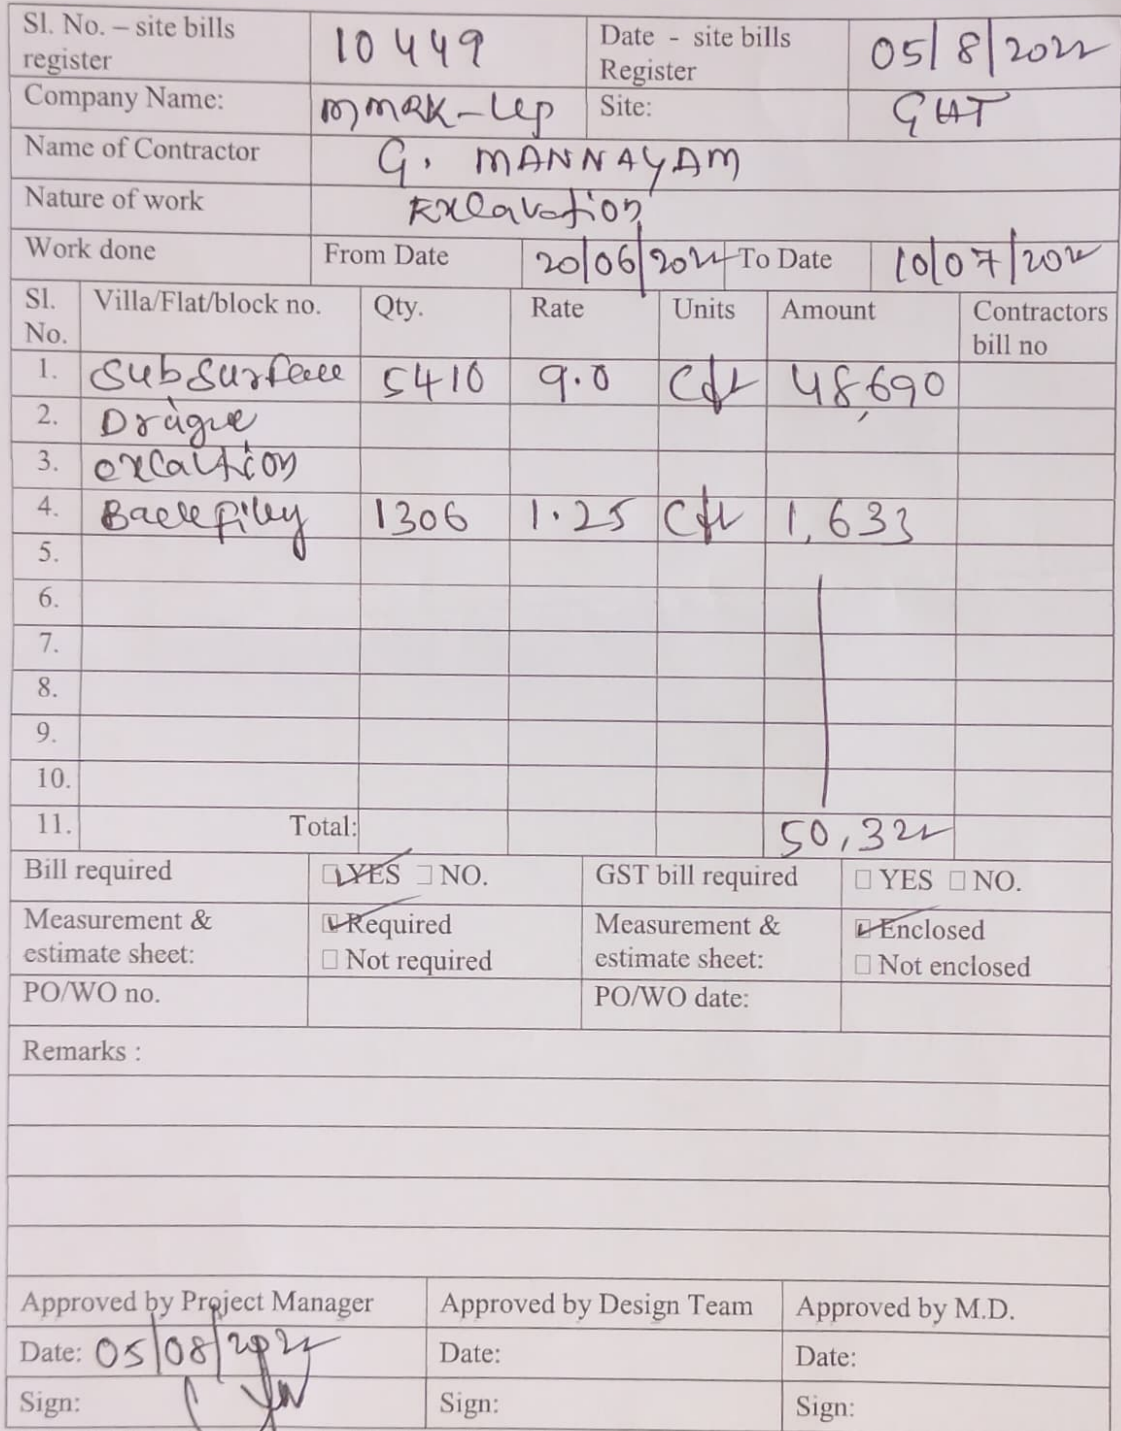 Sl. No. – site bills register 10449 Date - site bills Register 05/8/2022
Company Name: MMRK-LLP Site: GHT
Name of Contractor G. MANNAYAM
Nature of work Excavation
Work done From Date 20/06/2022 To Date 10/07/2022
Sl. No. Villa/Flat/block no. Qty. Rate Units Amount Contractors bill no
1. Subsurface 5410 9.0 Cft 48,690
2.
3.
4. 1306 1.25 Cft 1,633
5.
6.
7.
8.
9.
10.
11. Total: 50,322
Bill required ☑ YES ☐ NO. GST bill required ☐ YES ☐ NO.
Measurement & estimate sheet: ☑ Required ☐ Not required Measurement & estimate sheet: ☑ Enclosed ☐ Not enclosed
PO/WO no. PO/WO date:
Remarks :
Approved by Project Manager Approved by Design Team Approved by M.D.
Date: 05/08/2022 Date: Date:
Sign: Sign: Sign: